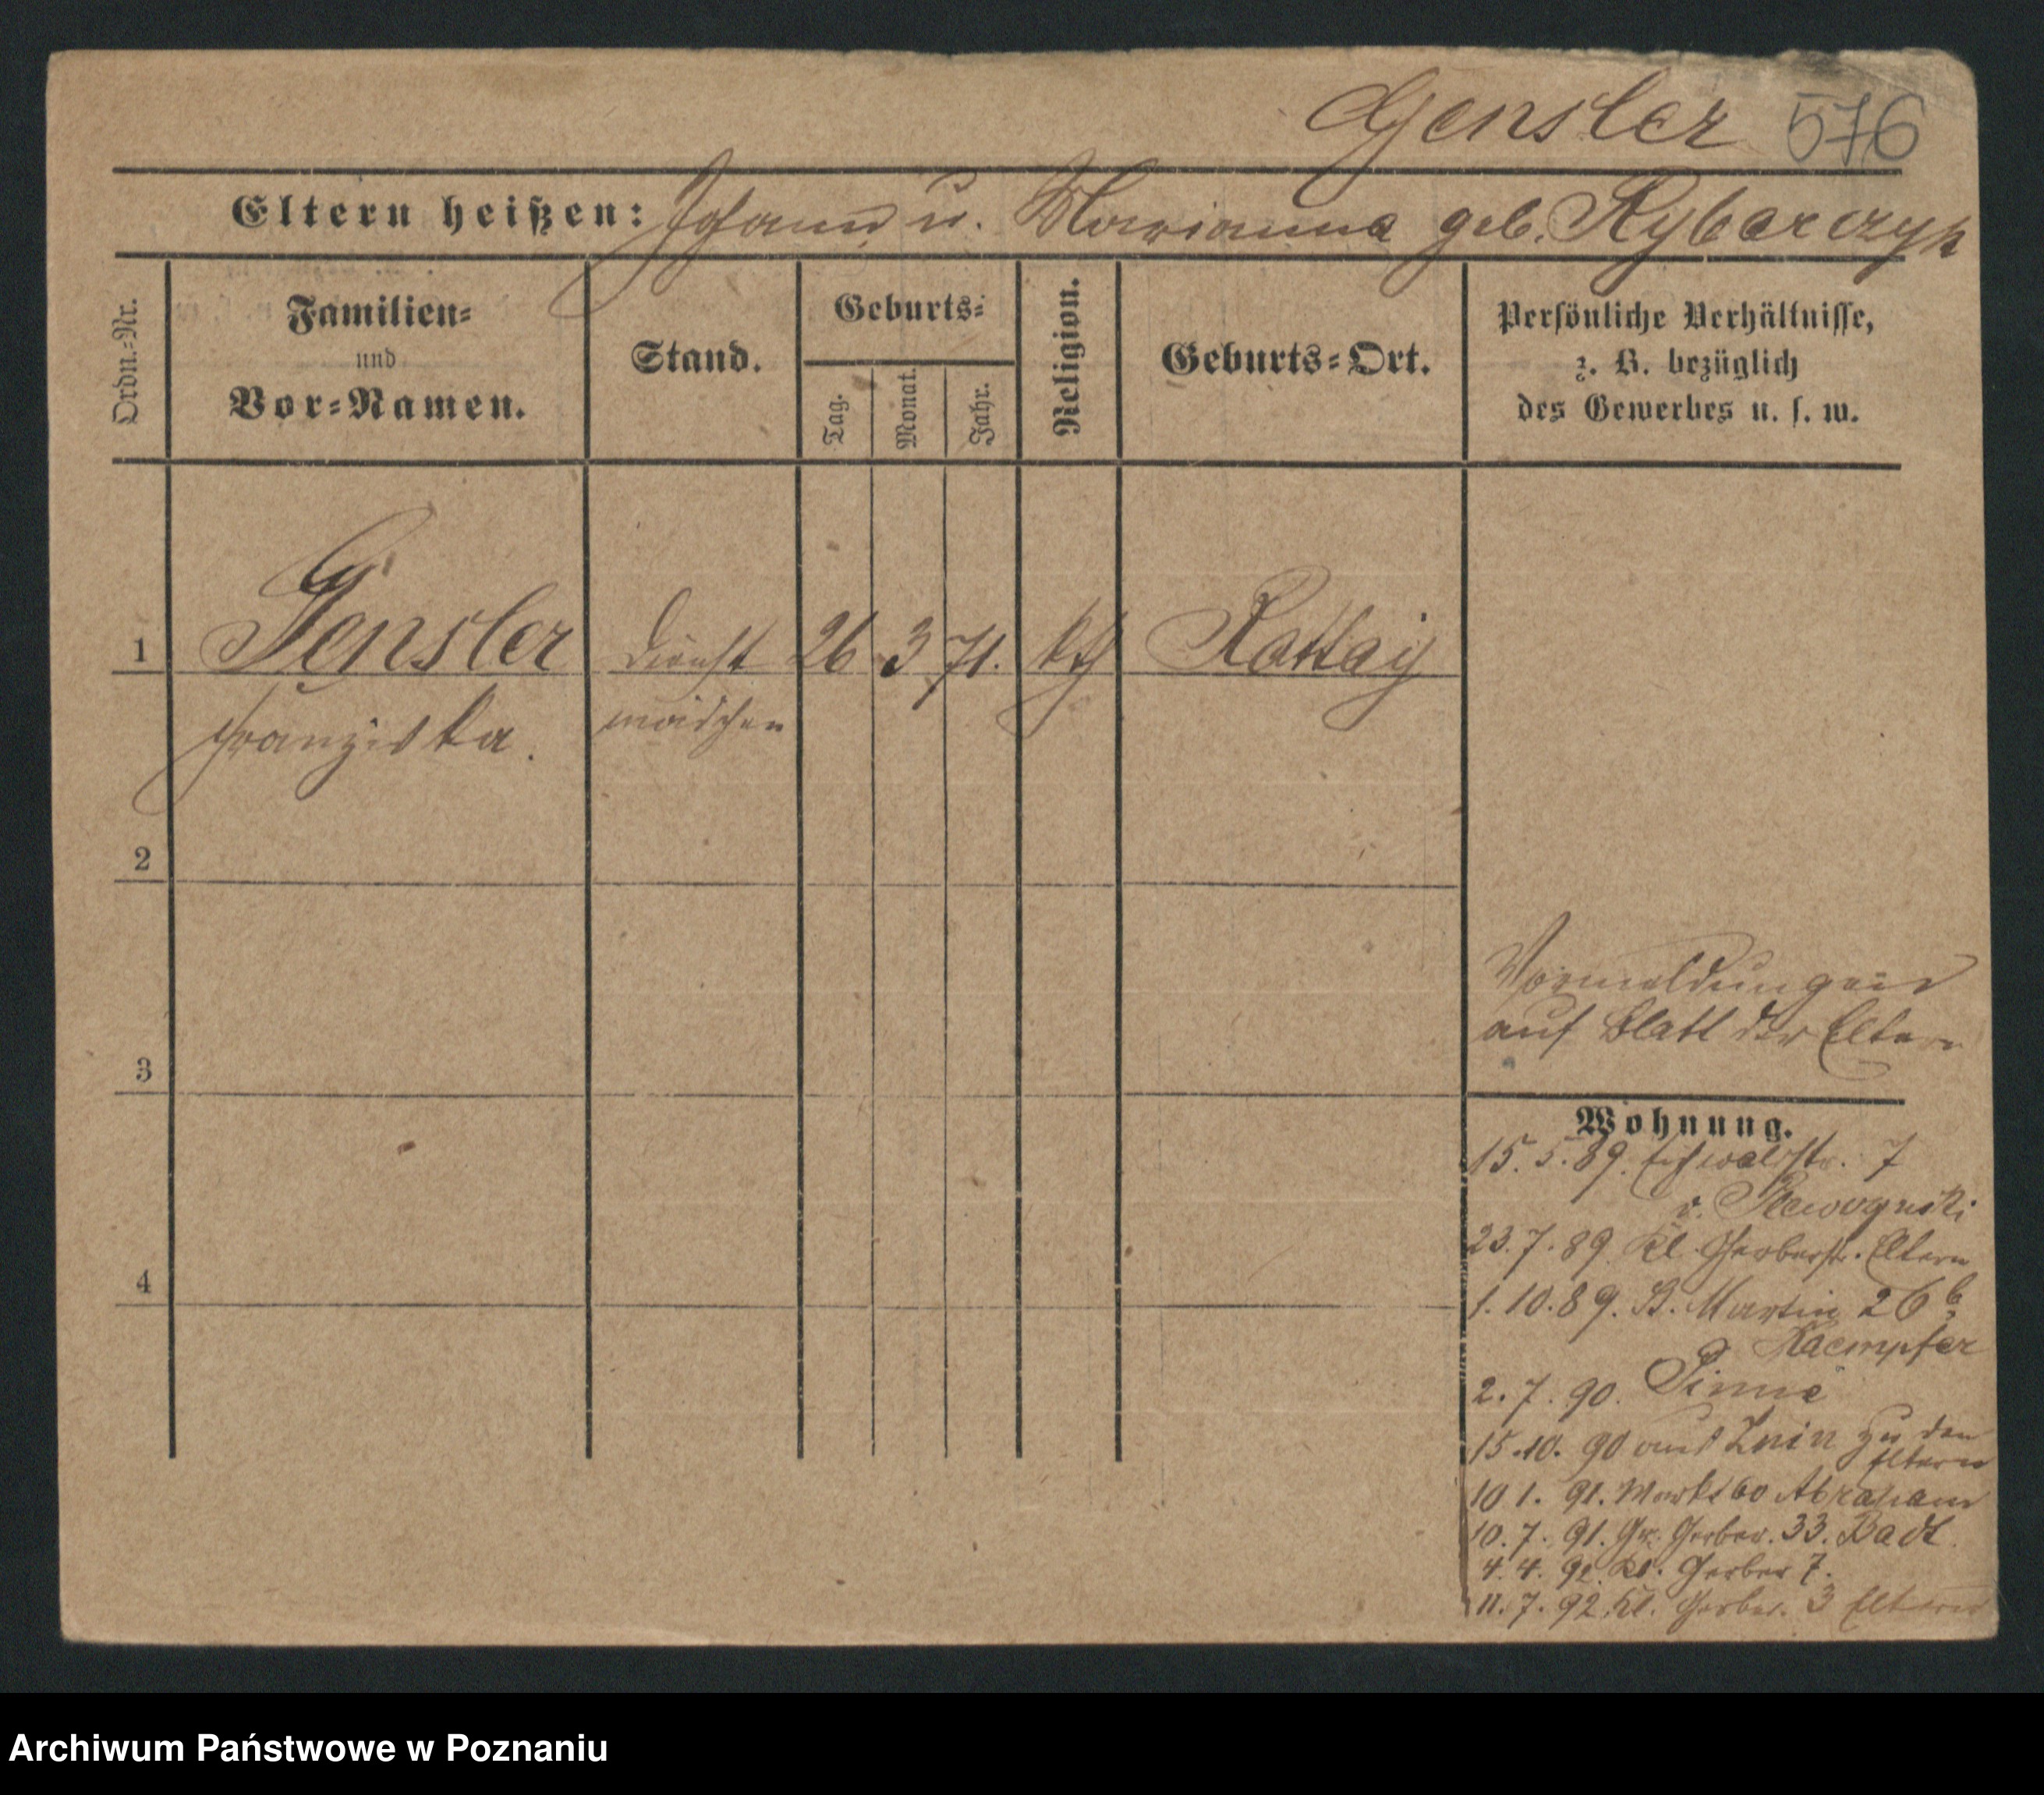 Gensler 576
Eltern heißen: Johann u. Marianna geb. Rybarczyk
Ordn.-Nr.
Familien-
und
Vor-Namen.
Stand.
Geburts-
Tag.
Monat.
Jahr.
Religion.
Geburts-Ort.
Persönliche Verhältnisse,
z. B. bezüglich
des Gewerbes u. s. w.
1 Gensler Dienst 26 3 71. kth Rattay
Franziska. mädchen
2
3
4
Vormeldungen
auf Blatt der Eltern
Wohnung.
15. 5. 89. 7
v.
23. 7. 89 Kl. Gerberstr. Eltern
1. 10. 89. St. Martin 26
Kaempfer
2. 7. 90. Pinne
15. 10. 90 aus Znin zu den
Eltern
10 1. 91. Markt 60 Abraham
10. 7. 91. Gr. Gerber. 33. Badt
4. 4. 92. Kl. Gerber 7.
11. 7. 92 Kl. Gerber. 3 Eltern
Archiwum Państwowe w Poznaniu